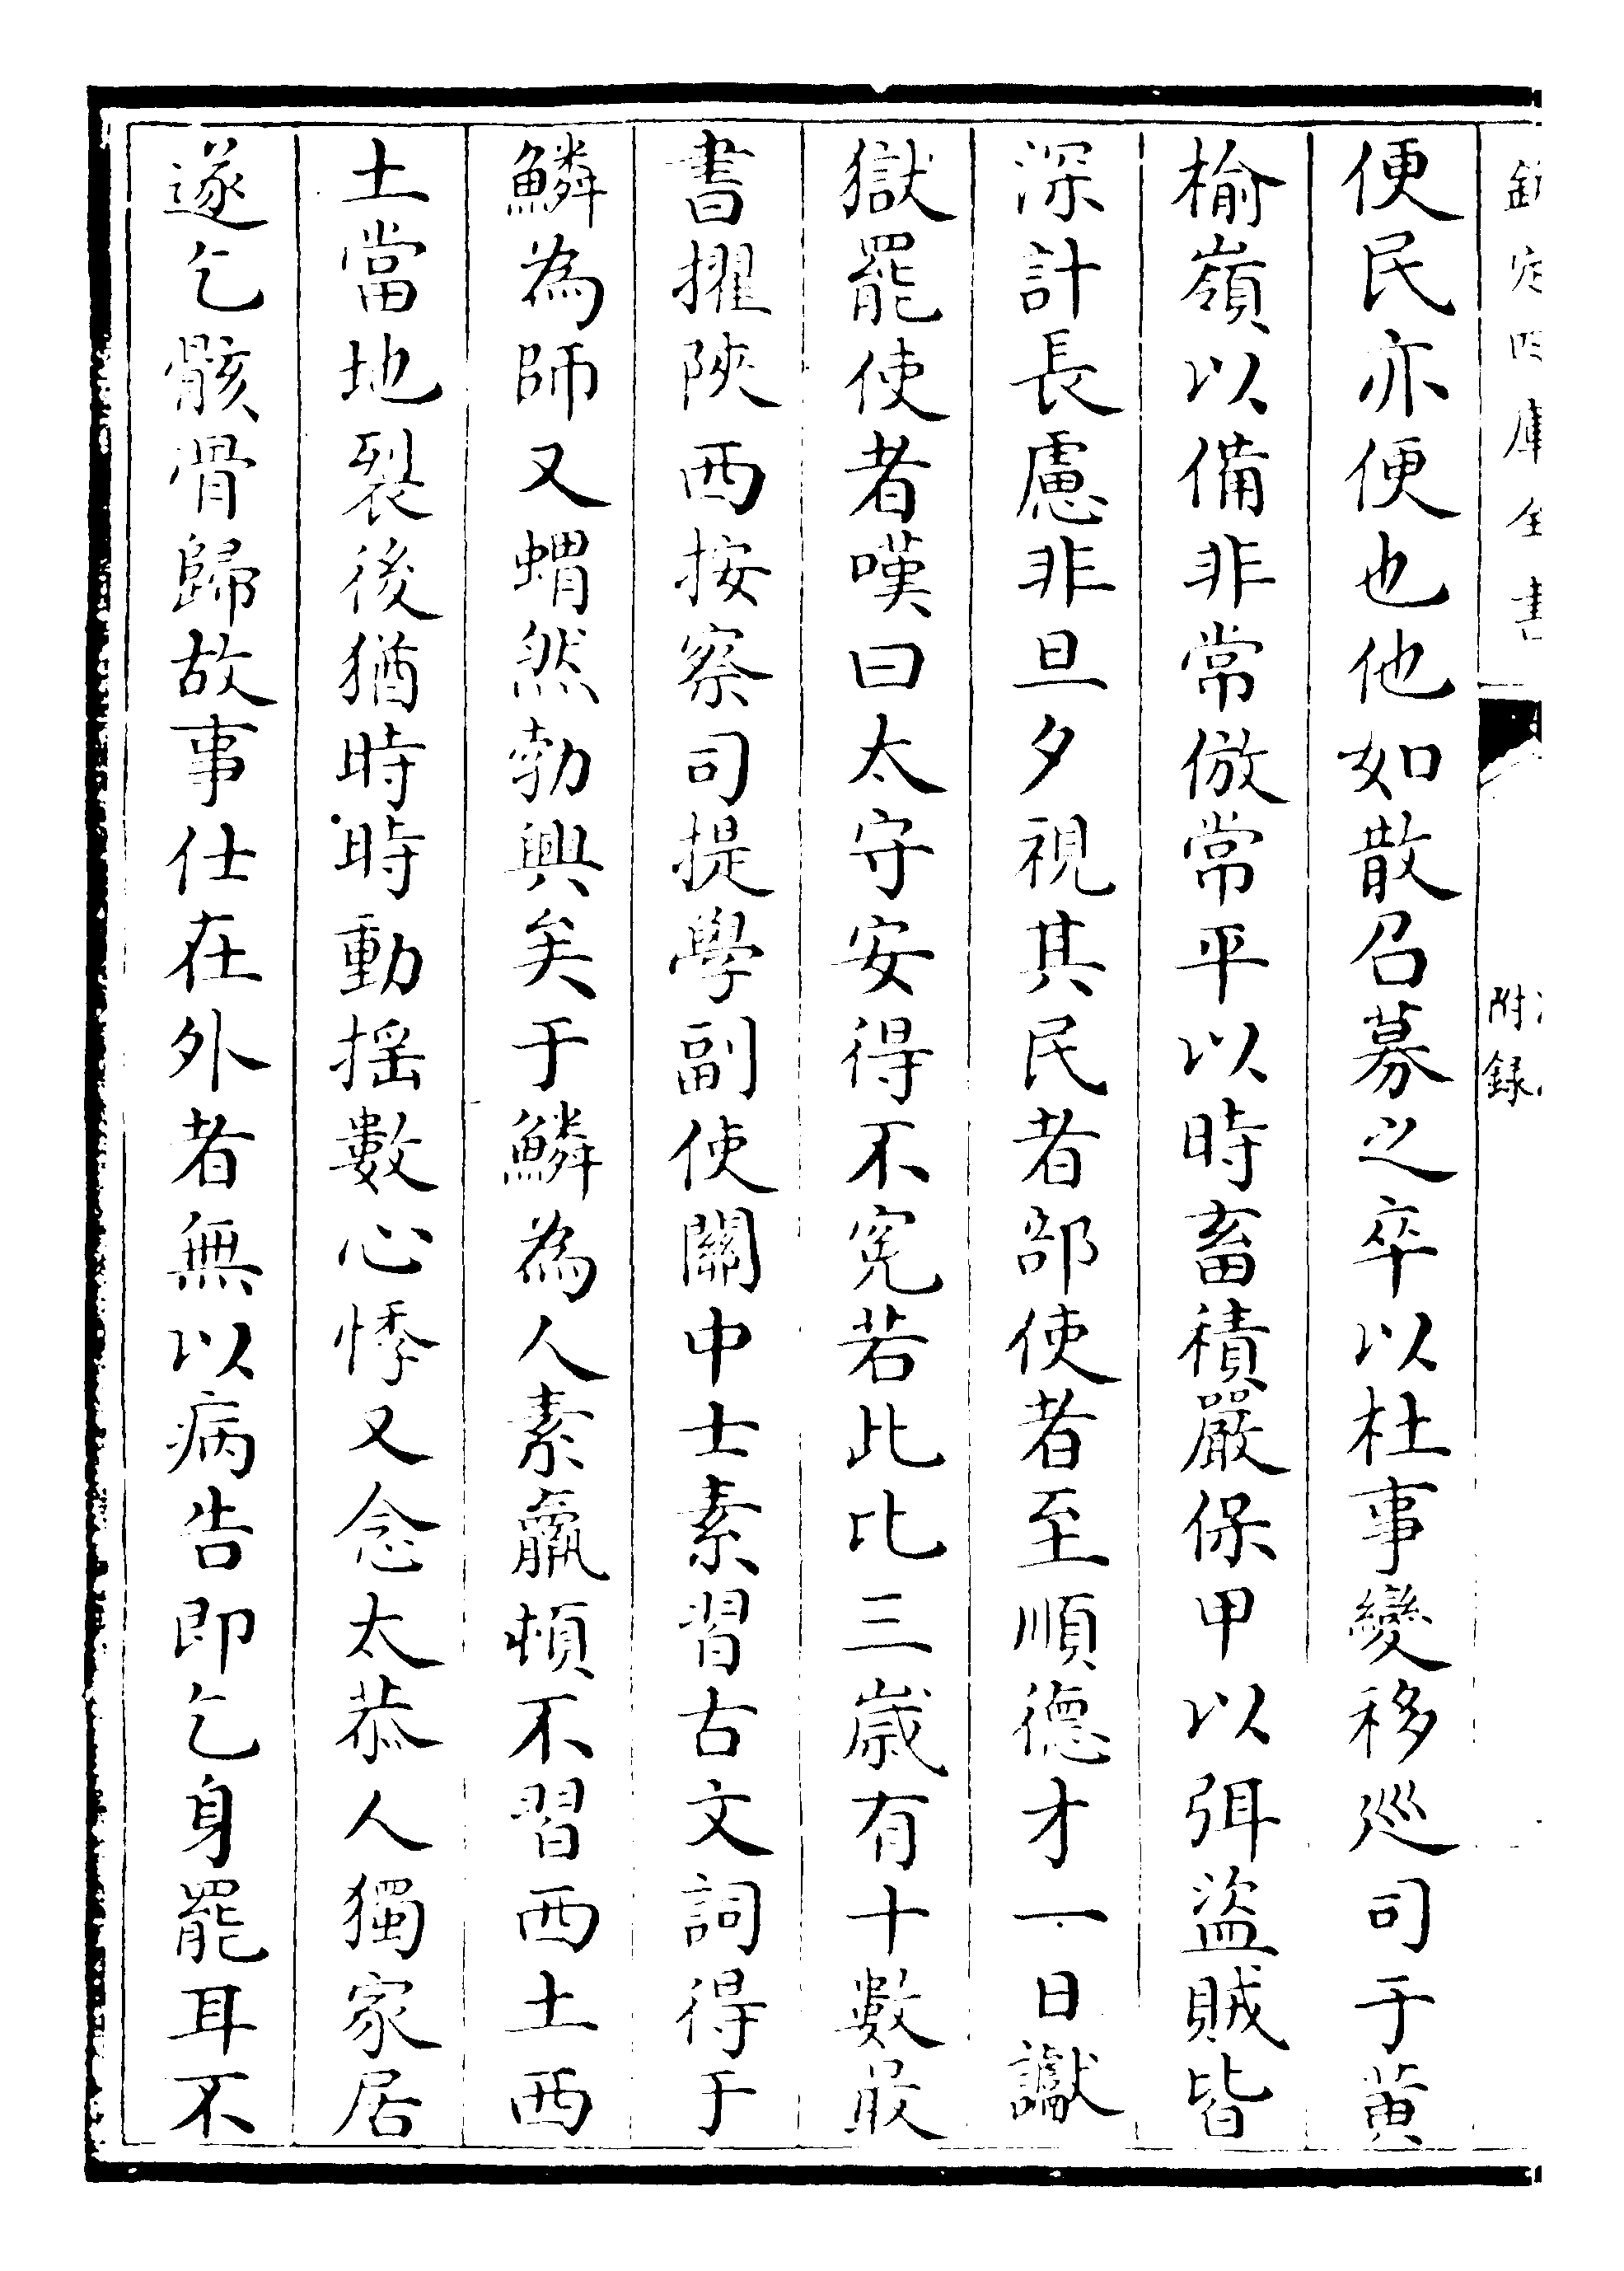 欽定四庫全書
附錄
便民亦便也他如散召募之卒以杜事變移巡司于黄
榆嶺以備非常倣常平以時畜積嚴保甲以弭盜賊皆
深計長慮非旦夕視其民者部使者至順德才一日讞
獄罷使者嘆曰太守安得不寃若此比三歲有十數最
書擢陜西按察司提學副使關中士素習古文詞得于
鱗為師又蝟然勃興矣于鱗為人素羸頓不習西土西
土當地裂後猶時時動揺數心悸又念太恭人獨家居
遂乞骸骨歸故事仕在外者無以病告即乞身罷耳不